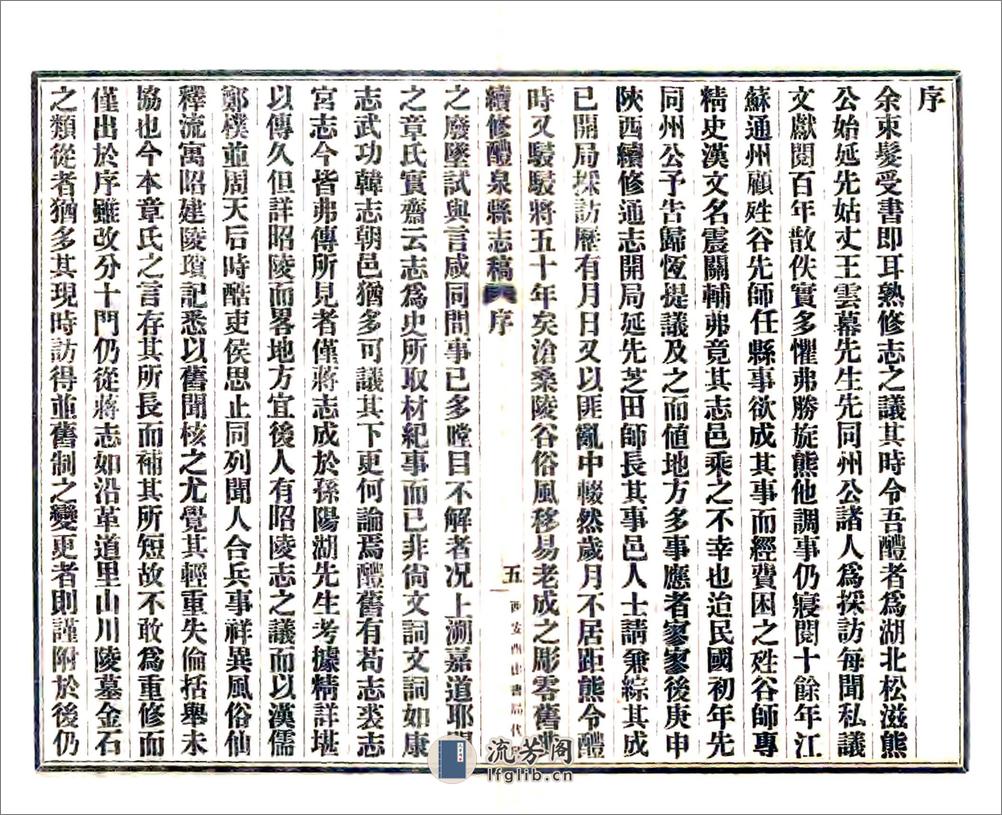 序
余束髮受書即耳熟修志之議其時令吾醴者爲湖北松滋熊
公始延先姑丈王雲幕先生先同州公諸人爲採訪每聞私議
文獻閱百年散佚實多懼弗勝旋熊他調事仍寢閱十餘年江
蘇通州顧甡谷先師任縣事欲成其事而經費困之甡谷師專
精史漢文名震關輔弗竟其志邑乘之不幸也迨民國初年先
同州公予告歸恆提議及之而値地方多事應者寥寥後庚申
陝西續修通志開局延先芝田師長其事邑人士請兼綜其成
已開局採訪歷有月日又以匪亂中輟然歲月不居距熊令醴
時又駸駸將五十年矣滄桑陵谷俗風移易老成之彫零舊
續修醴泉縣志稿 序 五 西安酉山書局代
之廢墜試與言咸同間事已多瞠目不解者况上溯嘉道耶
之章氏實齋云志爲史所取材紀事而已非尙文詞文詞如康
志武功韓志朝邑猶多可議其下更何論焉醴舊有苟志裘志
宮志今皆弗傳所見者僅蔣志成於孫陽湖先生考據精詳堪
以傳久但詳昭陵而畧地方宜後人有昭陵志之議而以漢儒
鄭樸並周天后時酷吏侯思止同列聞人合兵事祥異風俗仙
釋流寓昭建陵瑣記悉以舊聞核之尤覺其輕重失倫括舉未
協也今本章氏之言存其所長而補其所短故不敢爲重修而
僅出於序雖改分十門仍從蔣志如沿革道里山川陵墓金石
之類從者猶多其現時訪得並舊制之變更者則謹附於後仍
流芳閣
lfglib.cn